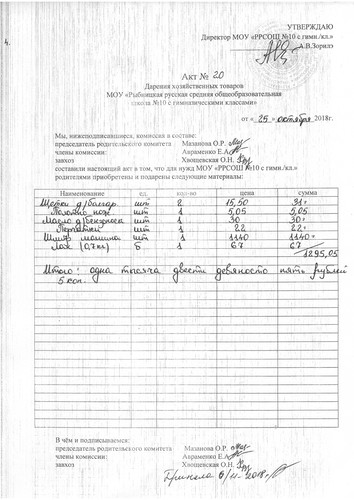 УТВЕРЖДАЮ
4.
Директор МОУ «РРСОШ №10 с гимн./кл.»
А.В.Зорилэ
Акт № 20
Дарения хозяйственных товаров
МОУ «Рыбницкая русская средняя общеобразовательная
школа №10 с гимназическими классами»
от « 25 » октября 2018г.
Мы, нижеподписавшиеся, комиссия в составе:
председатель родительского комитета Мазанова О.Р.
члены комиссии: Авраменко Е.А.
завхоз Хвощевская О.Н.
составили настоящий акт в том, что для нужд МОУ «РРСОШ №10 с гимн./кл.»
родителями приобретены и подарены следующие материалы:
Наименование ед. кол-во цена сумма
Щетки д/болгар шт 2 15,50 31=
Полотно нож шт 1 5,05 5,05
Масло д/бензокоса шт 1 30= 30=
Перчатки шт 1 22= 22=
Шлиф машина шт 1 1140 1140=
Лак (0,7кг) Б 1 67 67
1295,05
Итого: одна тысяча двести девяносто пять рублей
5 коп.
В чём и подписываемся:
председатель родительского комитета Мазанова О.Р.
члены комиссии: Авраменко Е.А.
завхоз Хвощевская О.Н.
Приняла 6/11-2018г.